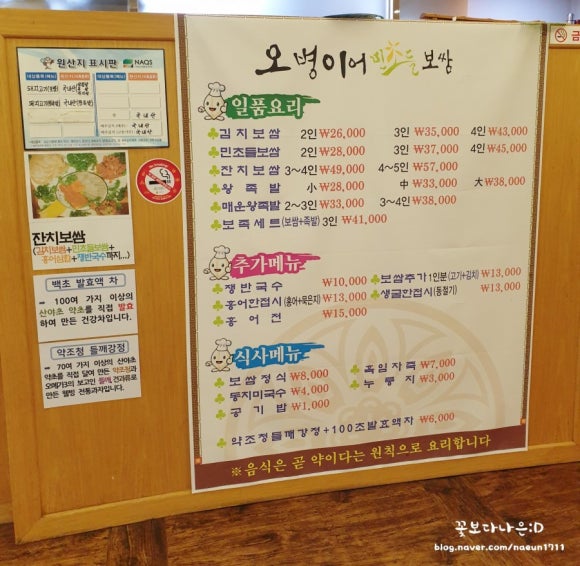 원산지 표시판
NAQS
국내산
오병이어 민초들 보쌈
일품요리
김치보쌈 2인 ₩26,000 3인 ₩35,000 4인 ₩43,000
민초들보쌈 2인 ₩28,000 3인 ₩37,000 4인 ₩45,000
잔치보쌈 3~4인 ₩49,000 4~5인 ₩57,000
왕족발 小 ₩28,000 中 ₩33,000 大 ₩38,000
매운왕족발 2~3인 ₩33,000 3~4인 ₩38,000
보족세트(보쌈+족발) 3인 ₩41,000
추가메뉴
쟁반국수 ₩10,000
홍어한접시(홍어+묵은지) ₩13,000
홍어전 ₩15,000
보쌈추가 1인분(고기+김치) ₩13,000
생굴한접시(동절기) ₩13,000
식사메뉴
보쌈정식 ₩8,000
동치미국수 ₩4,000
공기밥 ₩1,000
흑임자죽 ₩7,000
누룽지 ₩3,000
약조청들깨강정+100초발효액차 ₩6,000
※음식은 곧 약이다는 원칙으로 요리합니다
잔치보쌈
(김치보쌈+민초들보쌈+
홍어삼합+쟁반국수까지...)
백초 발효액 차
- 100여 가지 이상의
산야초 약초를 직접 발효
하여 만든 건강차입니다.
약조청 들깨강정
- 70여 가지 이상의 산야초
약초를 직접 달여 만든 약조청과
오메가3의 보고인 들깨,견과류로
만든 웰빙 전통과자입니다.
금
꽃보다나은:D
blog.naver.com/naeun1711